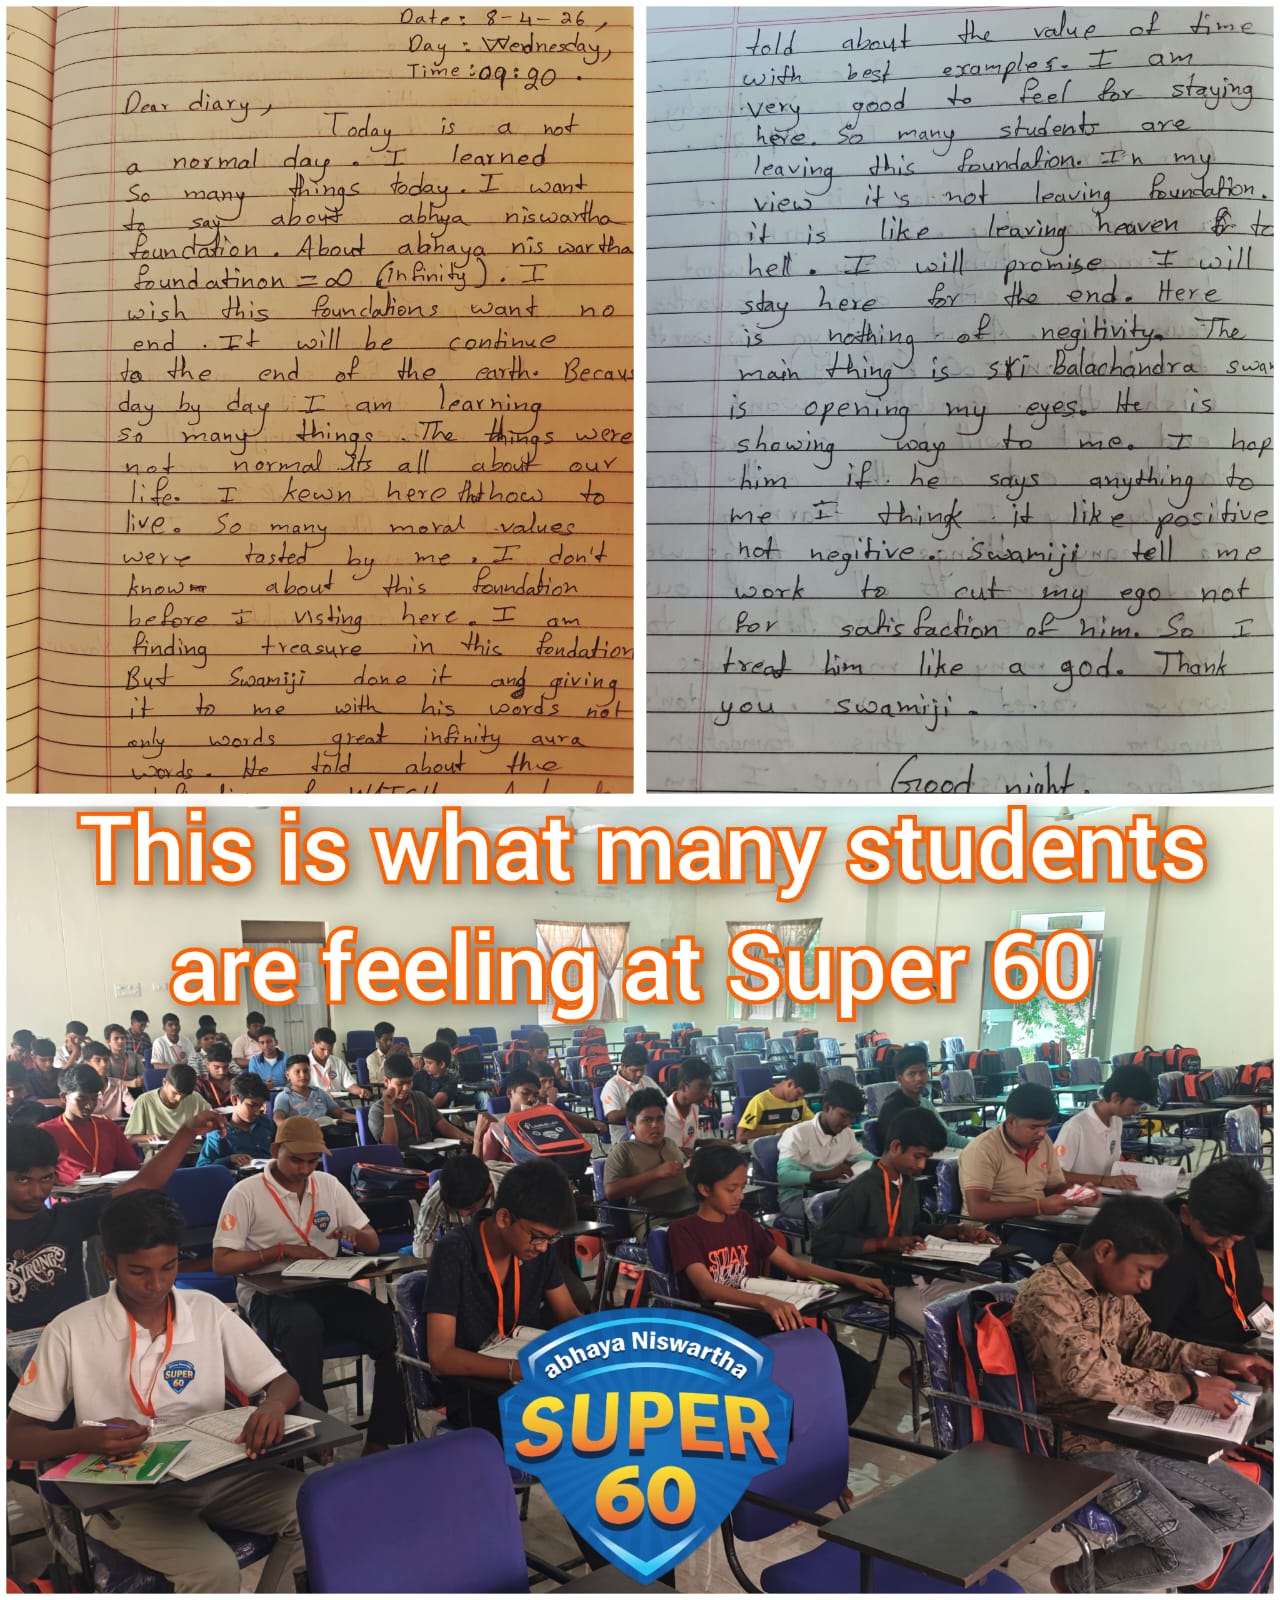 Date: 8-4-26,
Day: Wednesday,
Time:09:20.
Dear diary,
Today is a not
a normal day. I learned
So many things today. I want
to say about abhya niswartha
foundation. About abhaya nis wartha
foundatinon = ∞ (infinity). I
wish this foundations want no
end. It will be continue
to the end of the earth. Becau
day by day I am learning
so many things. The things were
not normal its all about our
life. I kewn here that how to
live. So many moral values
were tasted by me. I don't
know about this foundation
before I visting here. I am
finding treasure in this fondation
But Swamiji done it and giving
it to me with his words not
only words great infinity aura
words. He told about the
WATCH
told about the value of time
with best examples. I am
very good to feel for staying
here. So many students are
leaving this foundation. In my
view it's not leaving foundation.
it is like leaving heaven to
hell. I will promise I will
stay here for the end. Here
is nothing of negitivity. The
main thing is sri Balachandra swam
is opening my eyes. He is
showing way to me. I hop
him if he says anything to
me I think it like positive
not negitive. Swamiji tell me
work to cut my ego not
for satisfaction of him. So I
treat him like a god. Thank
you swamiji.
Good night.
This is what many students
are feeling at Super 60
STRONG
STAY
SUPER
60
abhaya Niswartha
SUPER
60